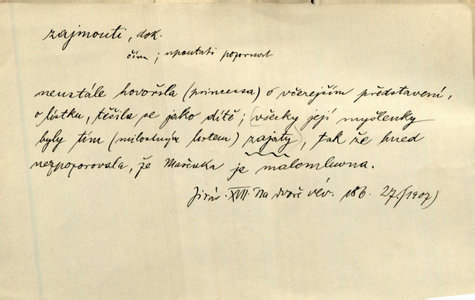 zajmouti, dok.
čím; upoutati pozornost
neustále hovořila (princezna) o včerejším představení,
o lístku, těšila se jako dítě; všecky její myšlenky
byly tím (milostným listem) zajaty, tak že hned
nezpozorovala, že Mařenka je malomluvna.
Jirás. XVII. Na dvoře vév. 186. 27. (1907)